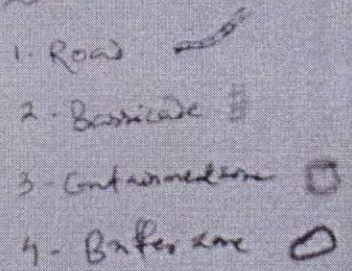 1. Road
2 - Barricade
3 - Containment zone
4 - Buffer zone